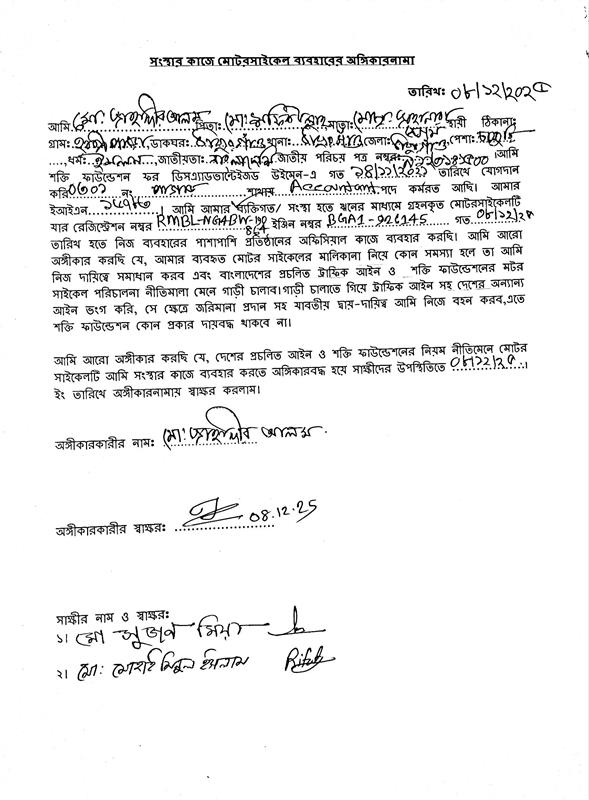 সংস্থার কাজে মোটরসাইকেল ব্যবহারের অঙ্গিকারনামা
তারিখ: ০৮/১২/২০২৫
আমি মো: জাহাঙ্গীর আলম পিতা: মো: মাতা: স্থায়ী ঠিকানা:
গ্রাম: ডাকঘর: থানা: জেলা: পেশা: চাকুরী
, ধর্ম: ইসলাম, জাতীয়তা: বাংলাদেশি জাতীয় পরিচয় পত্র নম্বর: ।আমি
শক্তি ফাউন্ডেশন ফর ডিসএ্যাডভান্টেইজড উইমেন-এ গত তারিখে যোগদান
করি নং শাখায় Accountant পদে কর্মরত আছি। আমার
ইআইএন । আমি আমার ব্যক্তিগত/ সংস্থা হতে ঋনের মাধ্যমে গ্রহনকৃত মোটরসাইকেলটি
যার রেজিষ্ট্রেশন নম্বর ইঞ্জিন নম্বর BGA1-926145 গত ০৮/১২/২৫
তারিখ হতে নিজ ব্যবহারের পাশাপাশি প্রতিষ্ঠানের অফিসিয়াল কাজে ব্যবহার করছি। আমি আরো
অঙ্গীকার করছি যে, আমার ব্যবহৃত মোটর সাইকেলের মালিকানা নিয়ে কোন সমস্যা হলে তা আমি
নিজ দায়িত্বে সমাধান করব এবং বাংলাদেশের প্রচলিত ট্রাফিক আইন ও শক্তি ফাউন্ডেশনের মটর
সাইকেল পরিচালনা নীতিমালা মেনে গাড়ী চালাব।গাড়ী চালাতে গিয়ে ট্রাফিক আইন সহ দেশের অন্যান্য
আইন ভংগ করি, সে ক্ষেত্রে জরিমানা প্রদান সহ যাবতীয় দ্বায়-দায়িত্ব আমি নিজে বহন করব,এতে
শক্তি ফাউন্ডেশন কোন প্রকার দায়বদ্ধ থাকবে না।
আমি আরো অঙ্গীকার করছি যে, দেশের প্রচলিত আইন ও শক্তি ফাউন্ডেশনের নিয়ম নীতিমেনে মোটর
সাইকেলটি আমি সংস্থার কাজে ব্যবহার করতে অঙ্গিকারবদ্ধ হয়ে সাক্ষীদের উপস্থিতিতে ০৮/১২/২৫ ।
ইং তারিখে অঙ্গীকারনামায় স্বাক্ষর করলাম।
অঙ্গীকারকারীর নাম: মো: জাহাঙ্গীর আলম
অঙ্গীকারকারীর স্বাক্ষর: 08.12.25
সাক্ষীর নাম ও স্বাক্ষর:
১। মো সুজন মিয়া
২। মো: ইসলাম